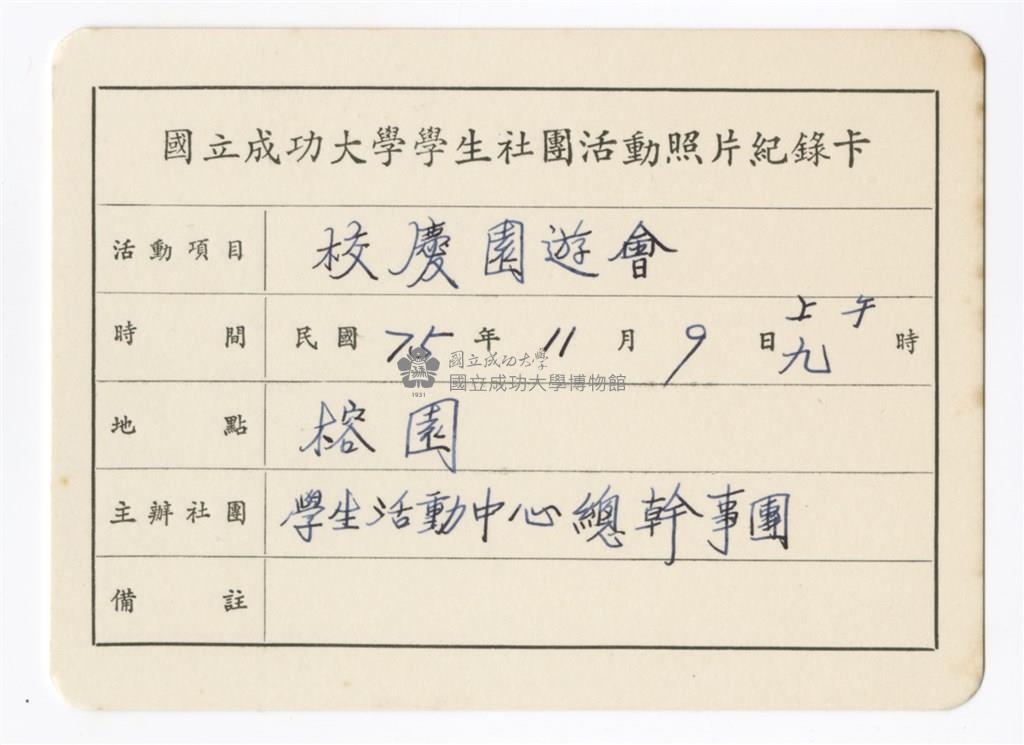 國立成功大學學生社團活動照片紀錄卡
活動項目 校慶園遊會
時間 民國75年11月9日上午九時
國立成功大學
國立成功大學博物館
1931
地點 榕園
主辦社團 學生活動中心總幹事團
備註